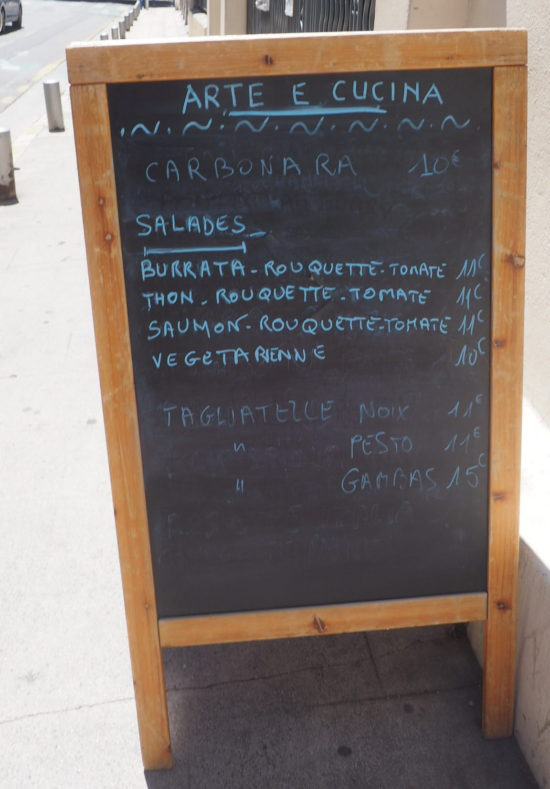 ARTE E CUCINA
CARBONARA 10€
SALADES
BURRATA - ROUQUETTE - TOMATE 11€
THON - ROUQUETTE - TOMATE 11€
SAUMON - ROUQUETTE - TOMATE 11€
VEGETARIENNE 10€
TAGLIATELLE NOIX 11€
" PESTO 11€
" GAMBAS 15€